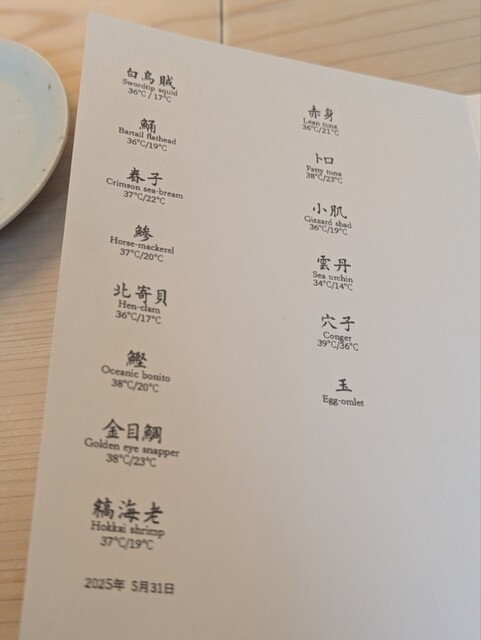 白烏賊
Swordtip squid
36℃ / 17℃
鯒
Bartail flathead
36℃/19℃
春子
Crimson sea-bream
37℃/22℃
鯵
Horse-mackerel
37℃/20℃
北寄貝
Hen-clam
36℃/17℃
鰹
Oceanic bonito
38℃/20℃
金目鯛
Golden eye snapper
38℃/23℃
縞海老
Hokkai shrimp
37℃/19℃
2025年 5月31日
赤身
Lean tuna
36℃/21℃
トロ
Fatty tuna
38℃/23℃
小肌
Gizzard shad
36℃/19℃
雲丹
Sea urchin
34℃/14℃
穴子
Conger
39℃/36℃
玉
Egg-omlet